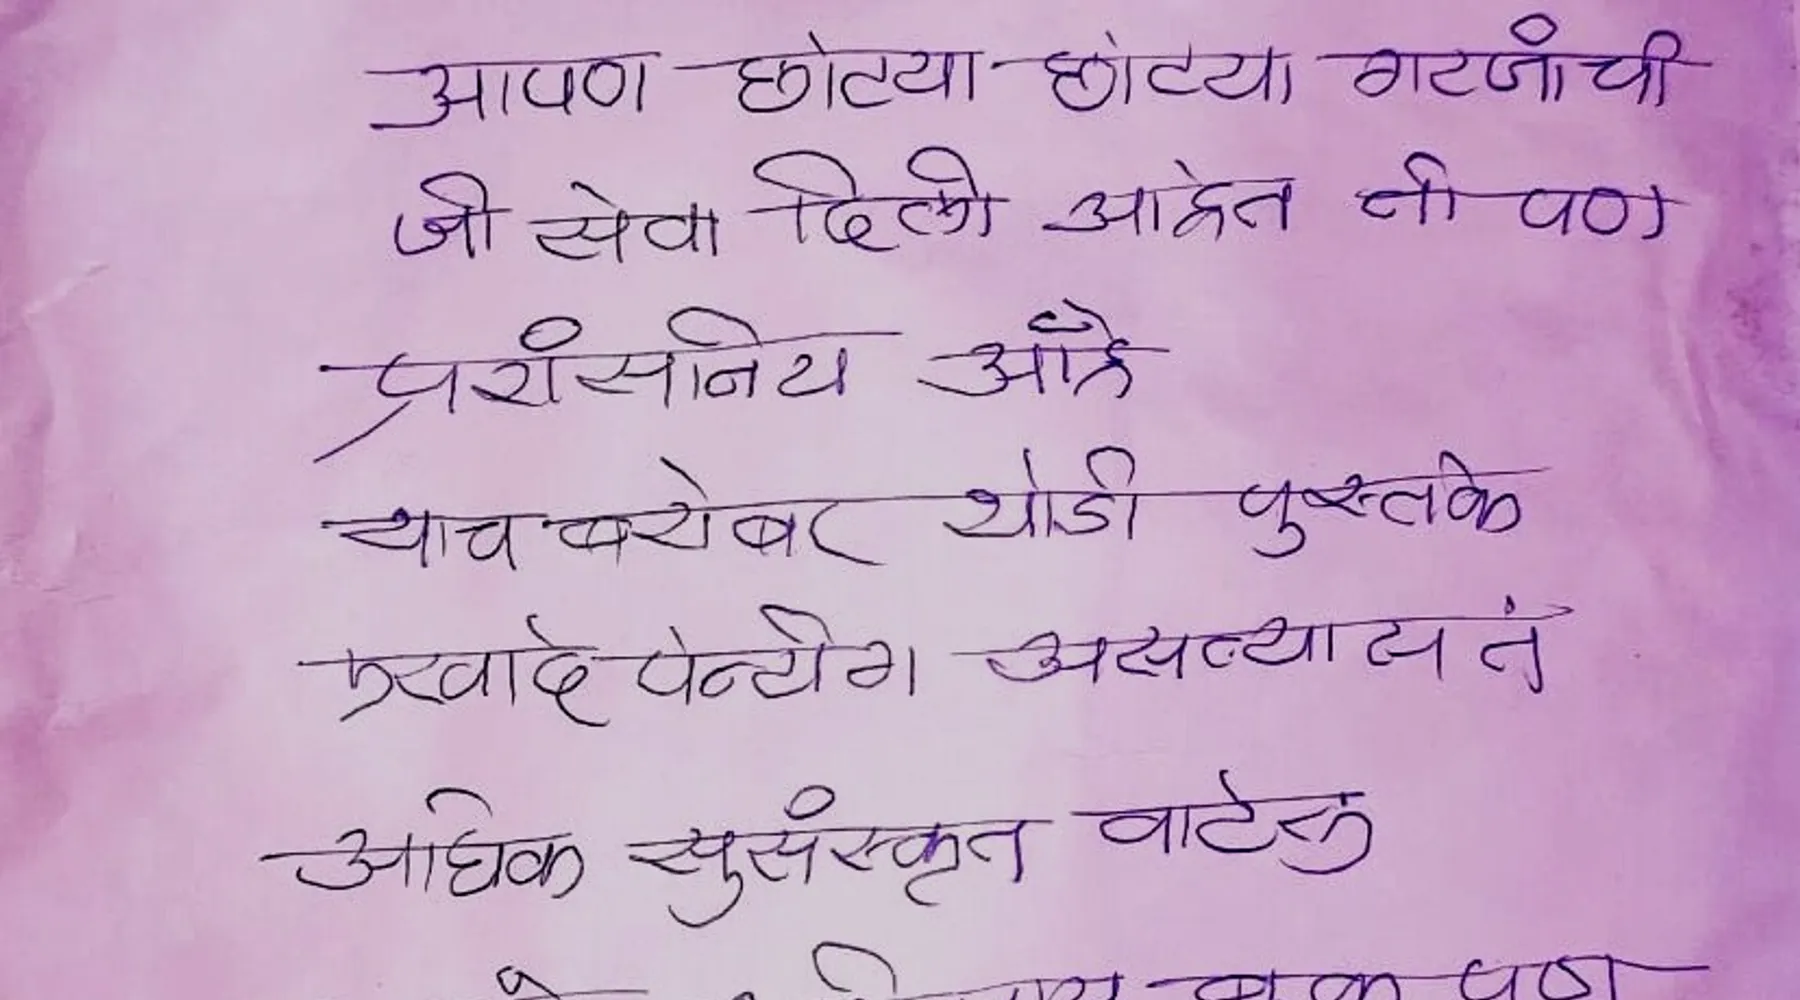 आपण छोट्या छोट्या गरजांची
जी सेवा दिली आहेत ती पण
प्रशंसनिय आहे
याच बरोबर थोडी पुस्तके
एखादे पेन्टींग असल्यास तं
अधिक सुसंस्कृत वाटेल
पण